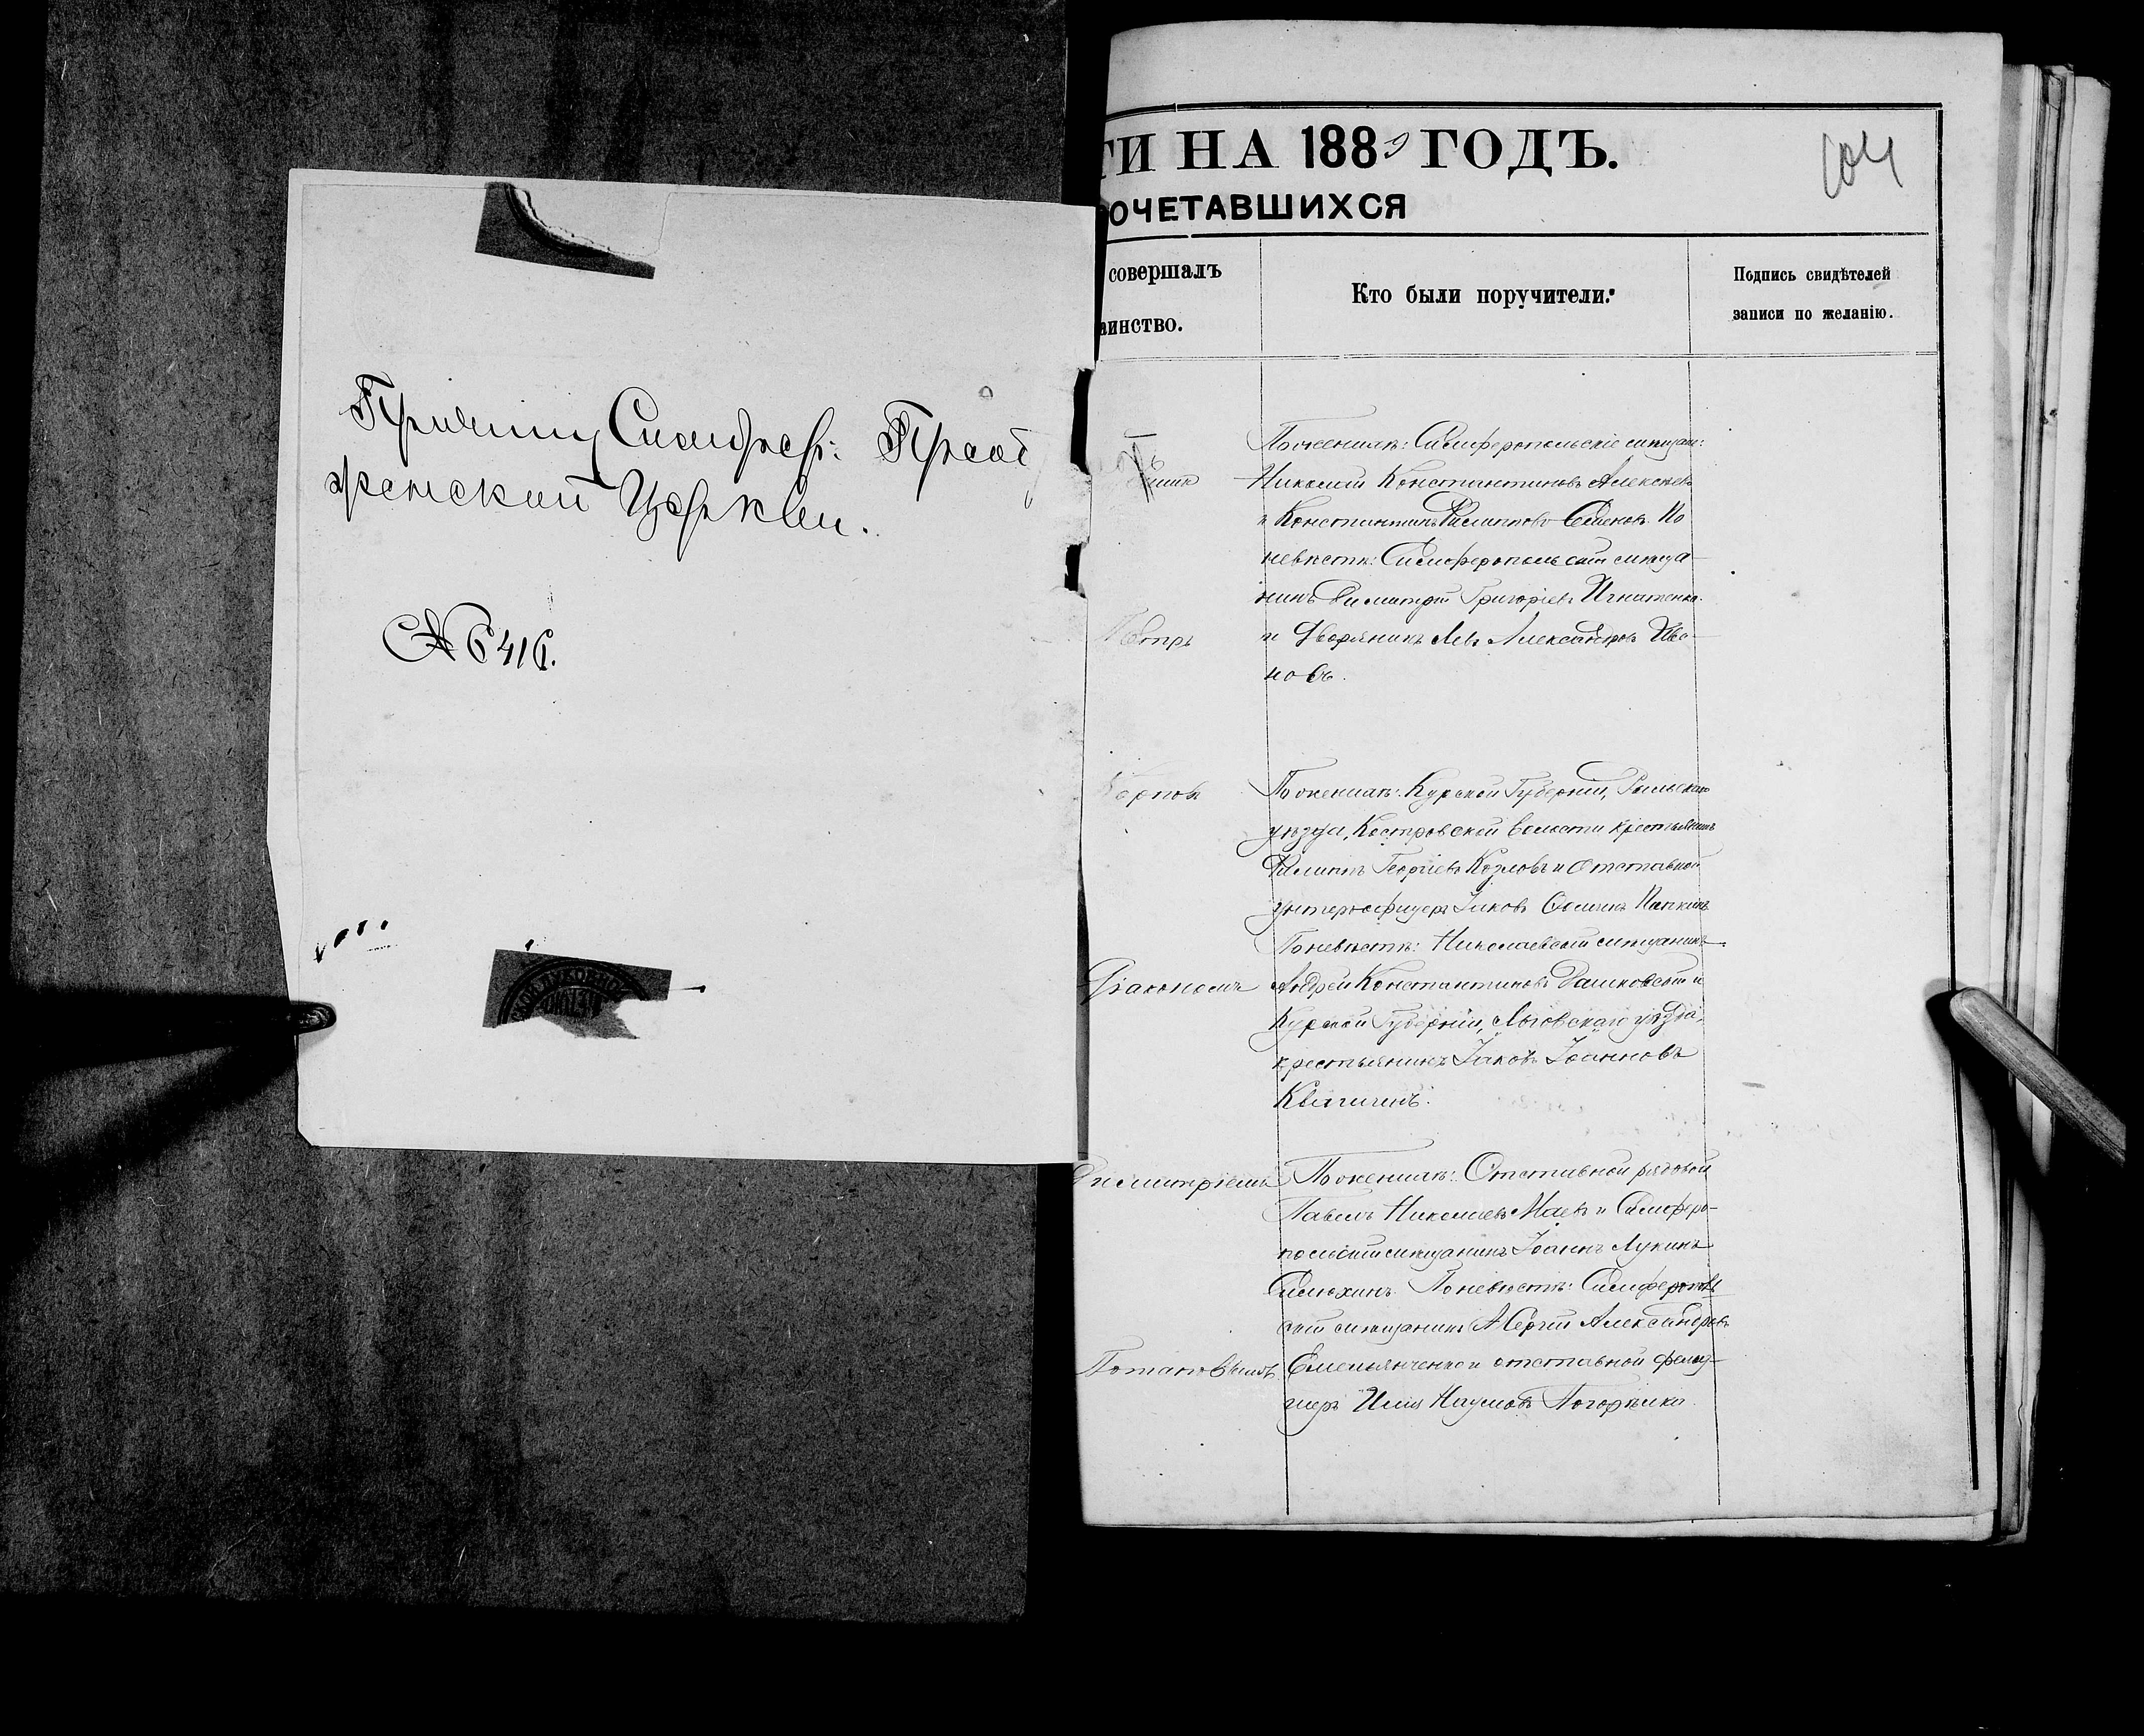 Причту Симфероп: Преоб
женской Церкви.
№ 6416.
ТИ НА 1889 ГОДЪ.
104
ОЧЕТАВШИХСЯ
совершалъ
инство.
Кто были поручители.
Подпись свидѣтелей
записи по желанію.
По женихѣ: Симферопольскіе мѣщан:
Николай Константиновъ Алексѣевъ
и Константинъ Филипповъ Семеновъ. По
невѣстѣ: Симферопольскій мѣща-
нинъ Димитрій Григоріевъ Игнатенко
и Дворянинъ Левъ Александровъ Ива-
новъ.
Петръ
Карповъ
По женихѣ: Курской Губерніи, Рыльскаго
уѣзда, Костровской волости крестьянинъ
Филиппъ Георгіевъ Козловъ и Отставной
унтеръ-офицеръ Іаковъ
По невѣстѣ: Николаевскій мѣщанинъ
Діакономъ
Андрей Константиновъ Дашковскій и
Курской Губерніи, Льговскаго уѣзда,
крестьянинъ Іаковъ Іоанновъ
Димитріемъ
По женихѣ: Отставной рядовой
Павелъ Николаевъ Маевъ и Симферо-
польскій мѣщанинъ Іоаннъ Лукинъ
По невѣстѣ: Симферополь
скій мѣщанинъ Сергій Александровъ
Потаповымъ
Емельянченко и отставной фельд-
шеръ Илія Наумовъ